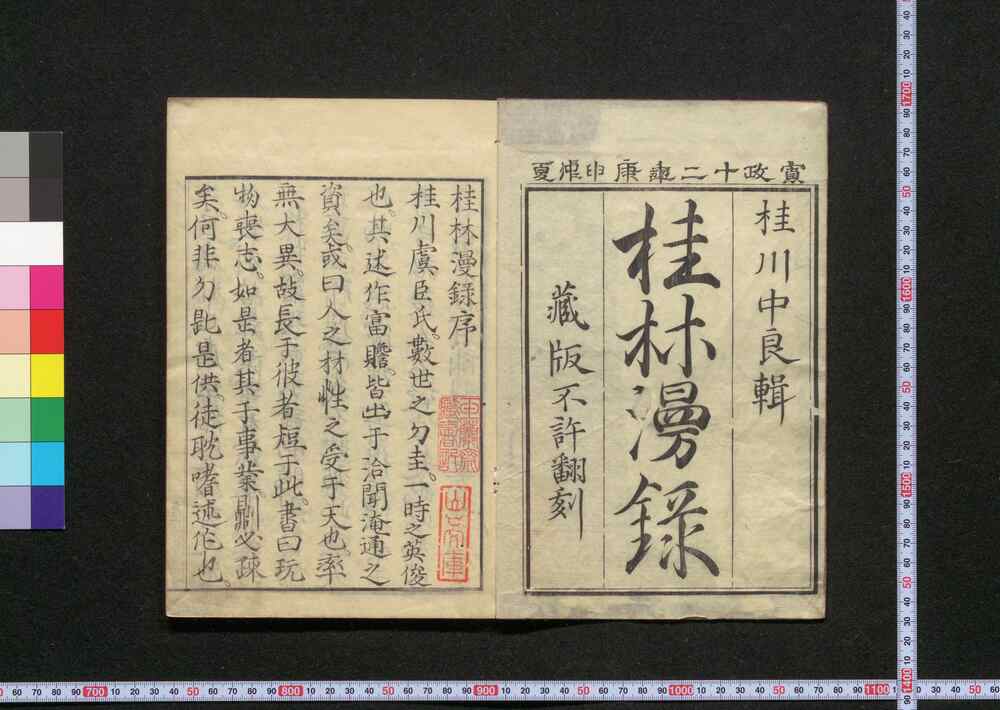 寛政十二年庚申仲夏
桂川中良輯
桂林漫録
藏版不許翻刻
桂林漫録序
桂川虞臣氏。數世之刀圭。一時之英俊
也。其述作富贍。皆出于洽聞淹通之
資矣。或曰人之材性之受于天也。率
無大異。故長于彼者短于此。書曰玩
物喪志。如是者其于事業鼎必疎
矣。何非刀匙是供。徒耽嗜述作也。